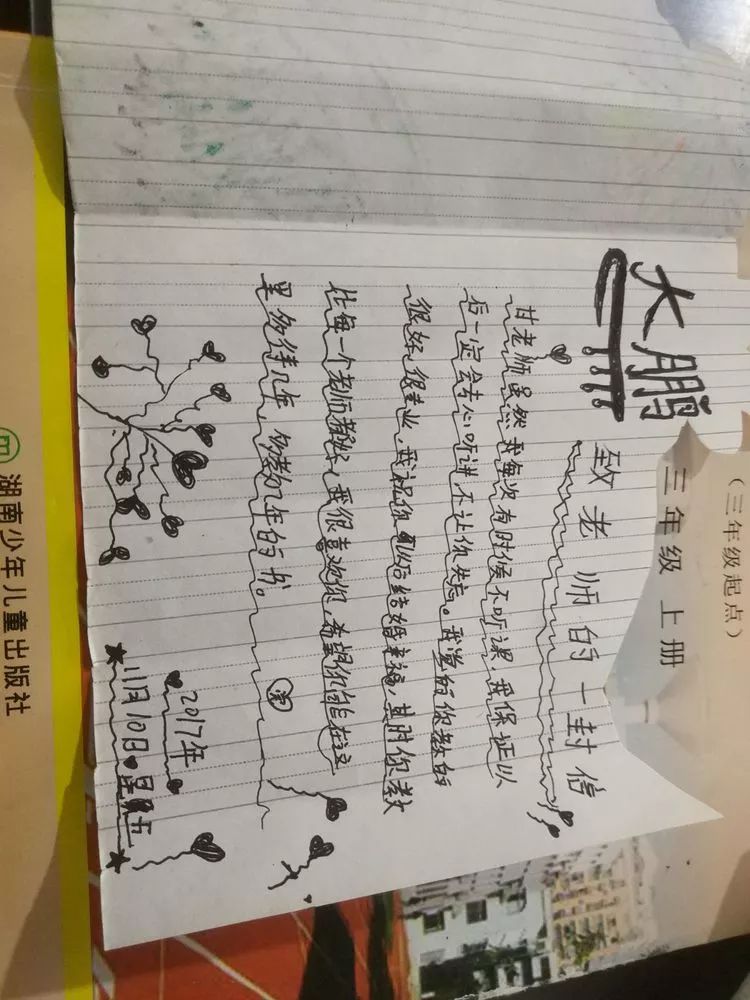 （三年级起点）
三年级 上册
大鹏
致老师的一封信
甘老师虽然我每次有时候不听课,我保证以
后一定会专心听讲不让你失忘。我觉的你教的
很好,很专业,我祝你以后结婚幸福,其时你教
比每一个老师都好,我很喜欢你,希望你能在这
里多待几年,多教几年的书。
2017年
11月10日星期五
湖南少年儿童出版社